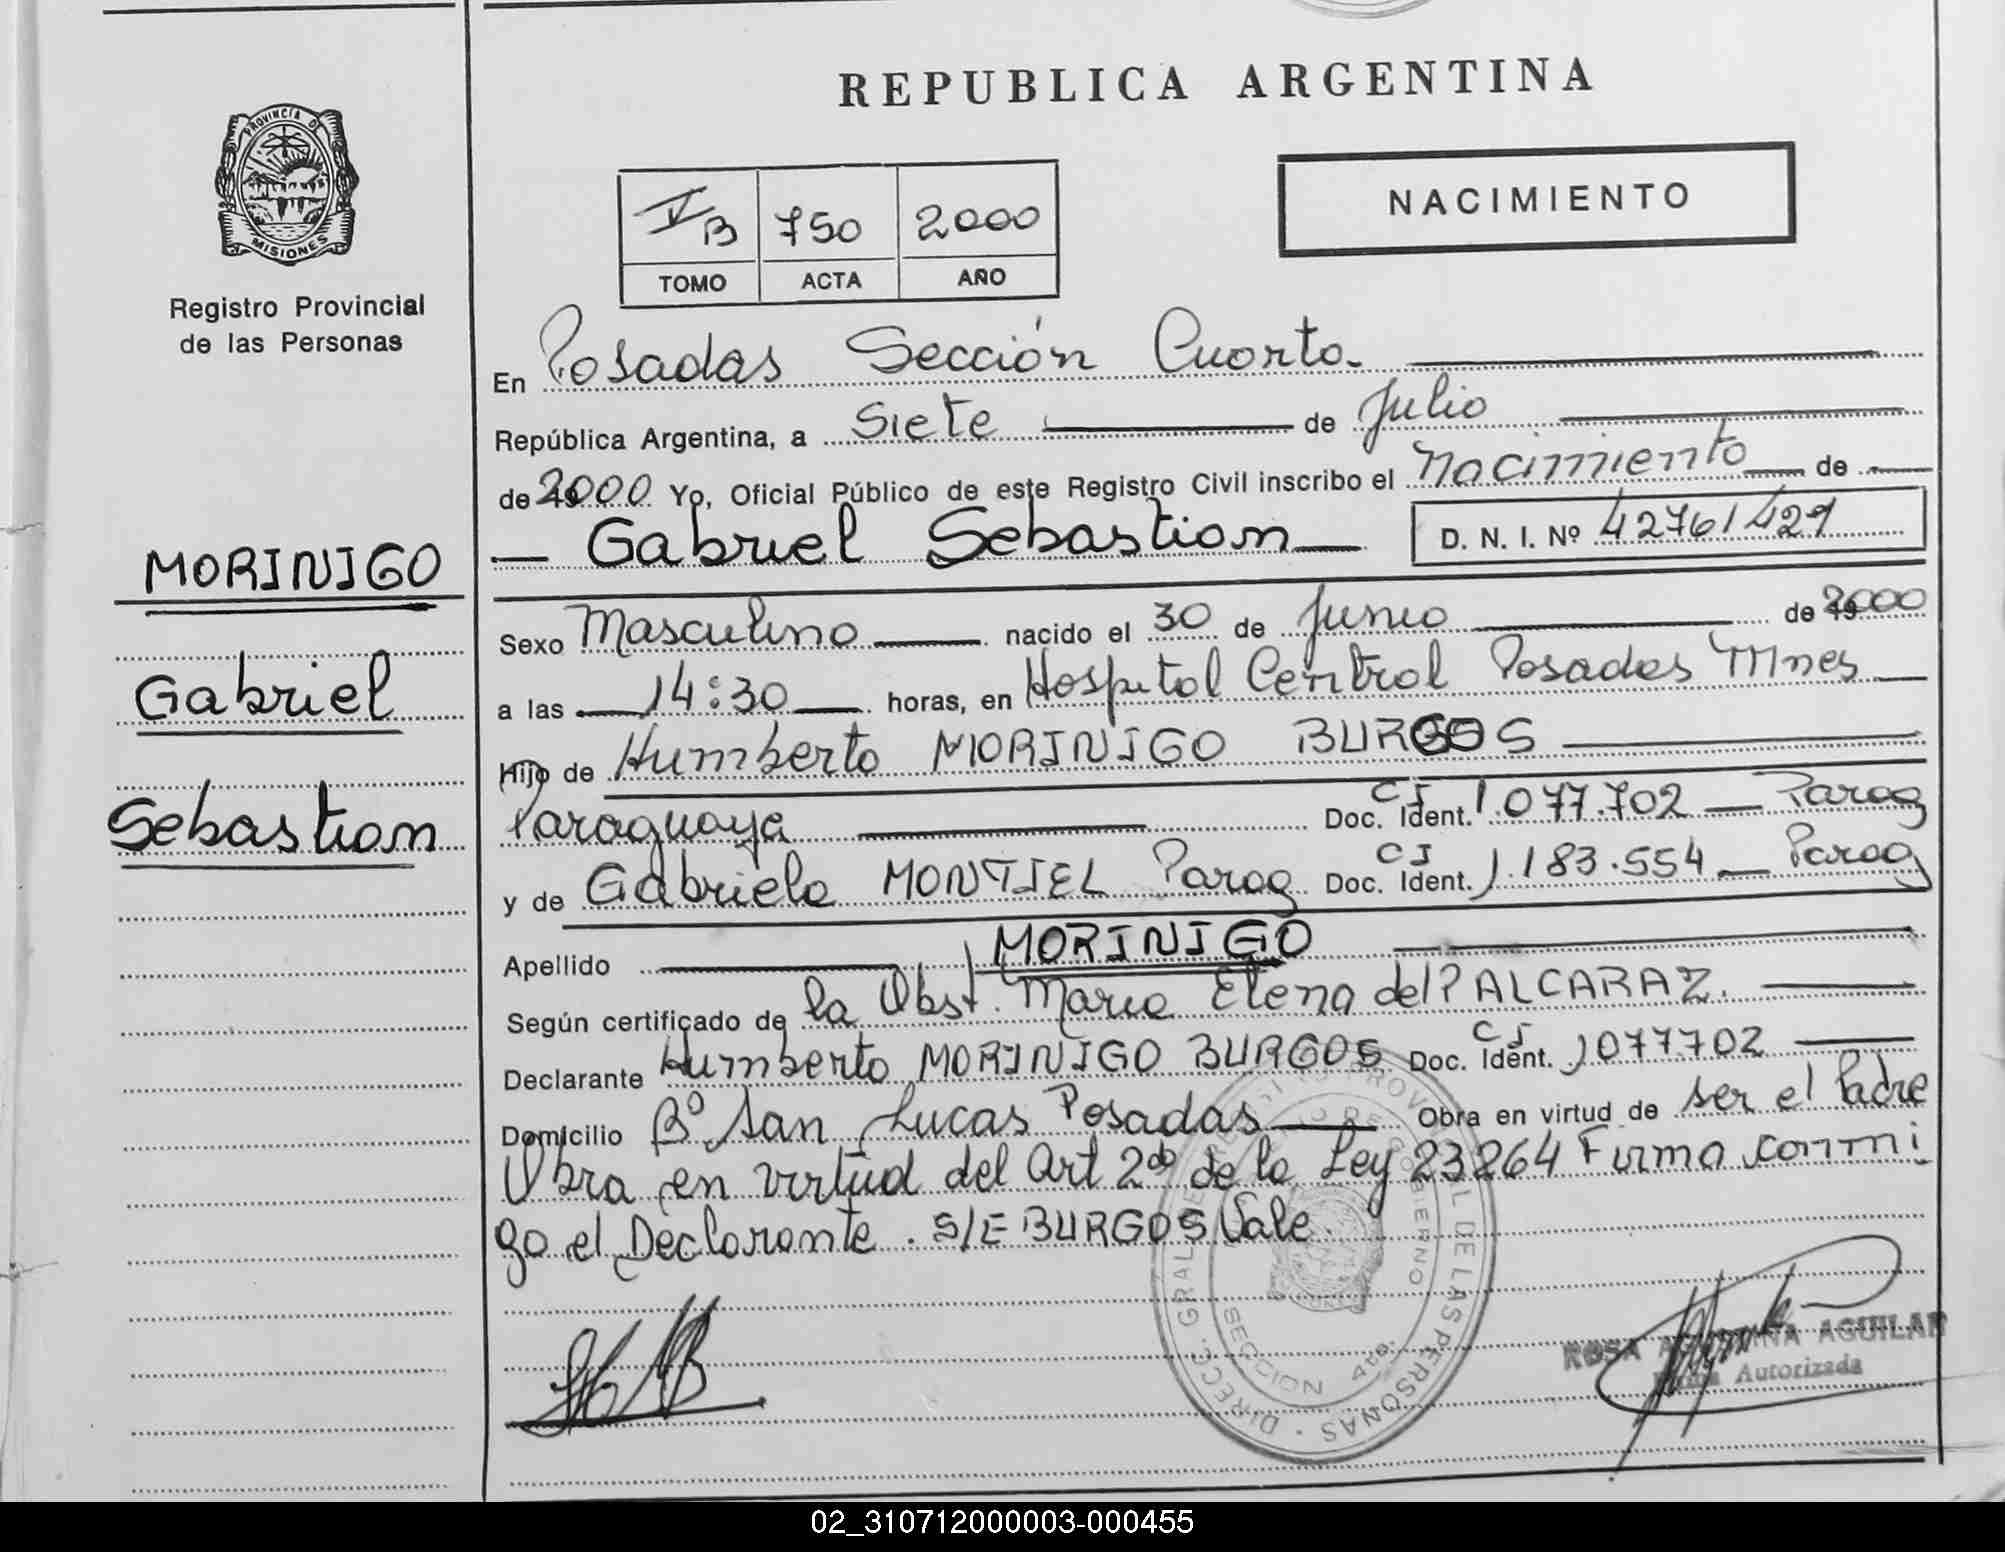 REPUBLICA ARGENTINA
PROVINCIA DE
MISIONES
Registro Provincial
de las Personas
NACIMIENTO
V B 750 2000
TOMO ACTA AÑO
En Posadas Sección Cuarta
República Argentina, a Siete de Julio
de 2000 Yo, Oficial Público de este Registro Civil inscribo el Nacimiento de
Gabriel Sebastian D. N. I. Nº 42761429
MORINIGO
Gabriel
Sebastian
Sexo Masculino nacido el 30 de Junio de 2000
a las 14:30 horas, en Hospital Central Posadas Mnes
Hijo de Humberto MORINIGO BURGOS
Paraguaya Doc. Ident. CI 1.077.702 Parag
y de Gabriela MONTIEL Parag Doc. Ident. CI 1.183.554 Parag
Apellido MORINIGO
Según certificado de la Obst. Maria Elena del P ALCARAZ.
Declarante Humberto MORINIGO BURGOS Doc. Ident. CI 1077702
Domicilio Bº San Lucas Posadas Obra en virtud de ser el Padre
Obra en virtud del Art 2do de la Ley 23264 Firma conmi
go el Declarante. S/E BURGOS Vale.
DIRECC. GRAL. DEL REGISTRO PROVINCIAL DE LAS PERSONAS
GOBIERNO
SECCION 4ta.
ROSA AGUILAR
Firma Autorizada
02_310712000003-000455